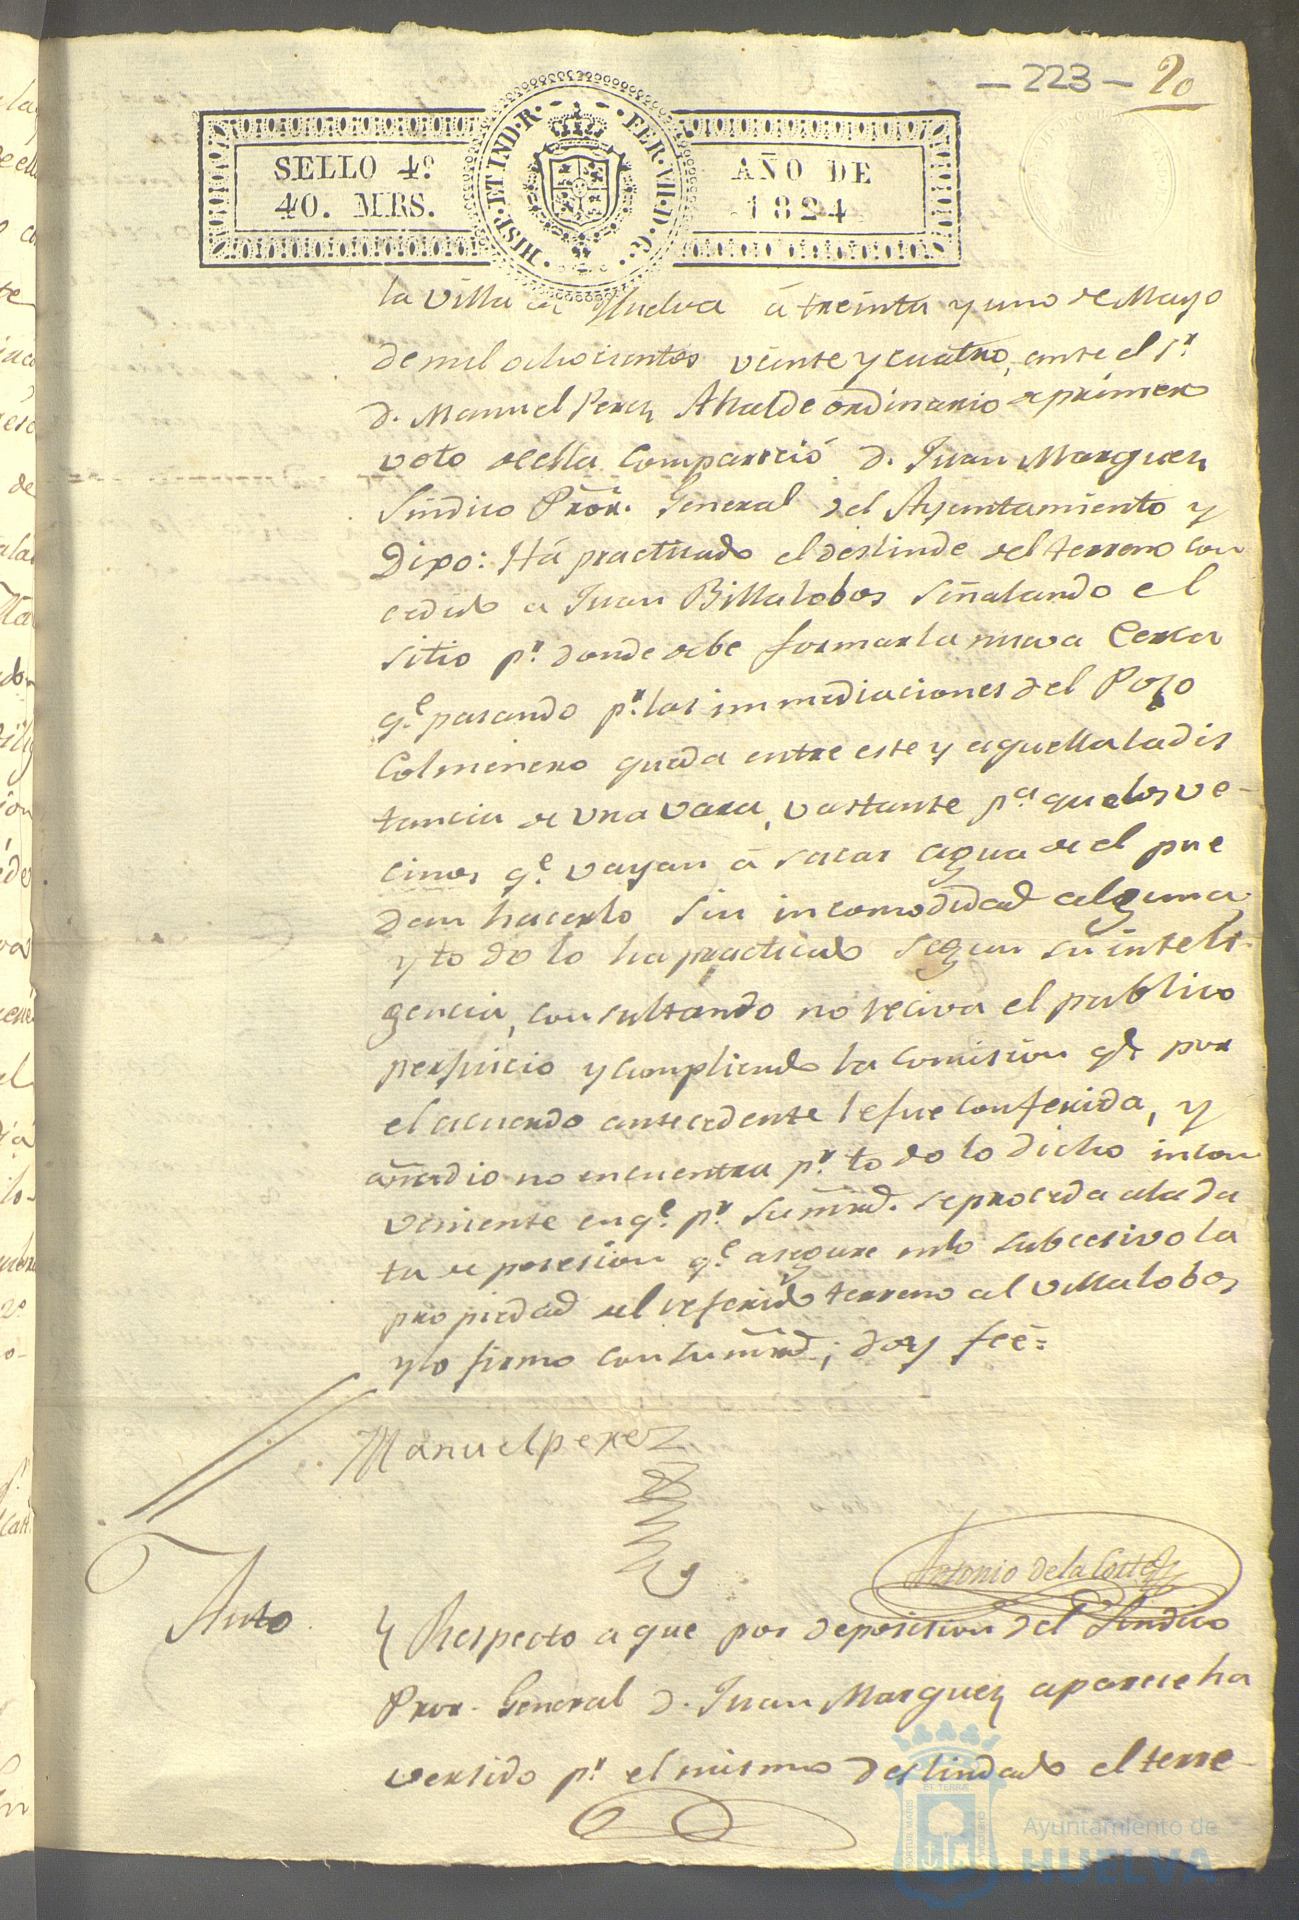 — 223 — 20
SELLO 4º
40. MRS.
HISP. ET IND. R. FER. VII. D. G.
AÑO DE
1824
la villa de Huelva á treinta y uno de Mayo
de mil ochocientos veinte y cuatro, ante el Sr.
D. Manuel Perez Alcalde ordinario de primer
voto de ella Compareció D. Juan Marquez
Sindico Pror. General del Ayuntamiento y
Dixo: Há practicado el deslinde del terreno con
cedido a Juan Billalobos señalando el
sitio pr. donde debe formar la nueva Cerca
qe. pasando pr. las immediaciones del Pozo
Colmenero queda entre este y aquella la dis
tancia de una vara, vastante pa. que los ve-
cinos qe. vayan á sacar agua de el pue
dan hacerlo sin incomodidad alguna
y todo lo ha practicado segun su inteli-
gencia, consultando no reciva el publico
perjuicio y cumpliendo la comision qe. por
el acuerdo antecedente le fue conferida, y
añadio no encuentra pr. todo lo dicho incon
veniente en qe. pr. su mrd. se proceda a la da
ta de posesion qe. asegure en lo subcesivo la
propiedad del referido terreno al Villalobos
y lo firmo con su mrd; doy feé=
Manuel perez
Antonio de la Corte
Auto
Respecto a que por deposicion del Sindico
Pror. General D. Juan Marquez aparece ha
versido pr. el mismo deslindado el terre-
Ayuntamiento de
HUELVA